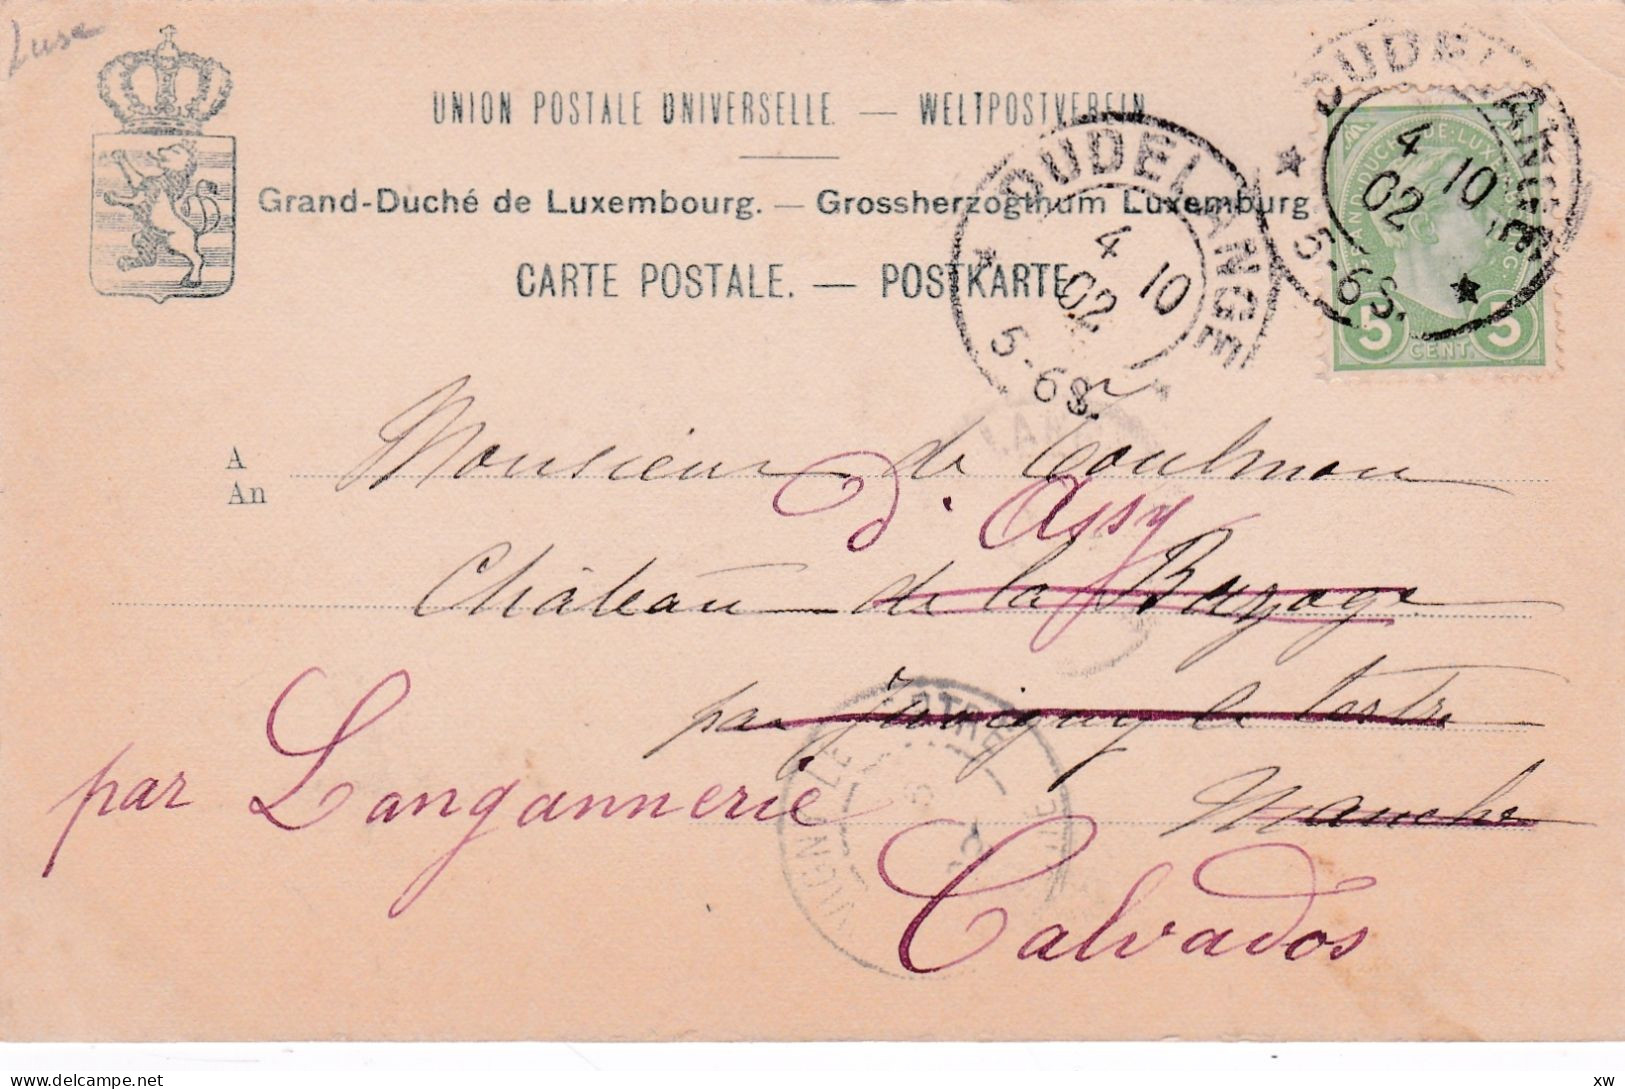 Luxe
UNION POSTALE UNIVERSELLE. — WELTPOSTVEREIN
Grand-Duché de Luxembourg. — Grossherzogthum Luxemburg
CARTE POSTALE. — POSTKARTE
DUDELANGE
4 10
02
5-6S.
DUDELANGE
4 10
02
5-6S.
GRAND-DUCHÉ DE LUXEMBOURG
5 CENT. 5
A
An
Monsieur de Coulmon
d'Assy
Château de la Bazoge
par Juvigny le Tertre
par Langannerie
Manche
Calvados
JUVIGNY LE TERTRE
xw